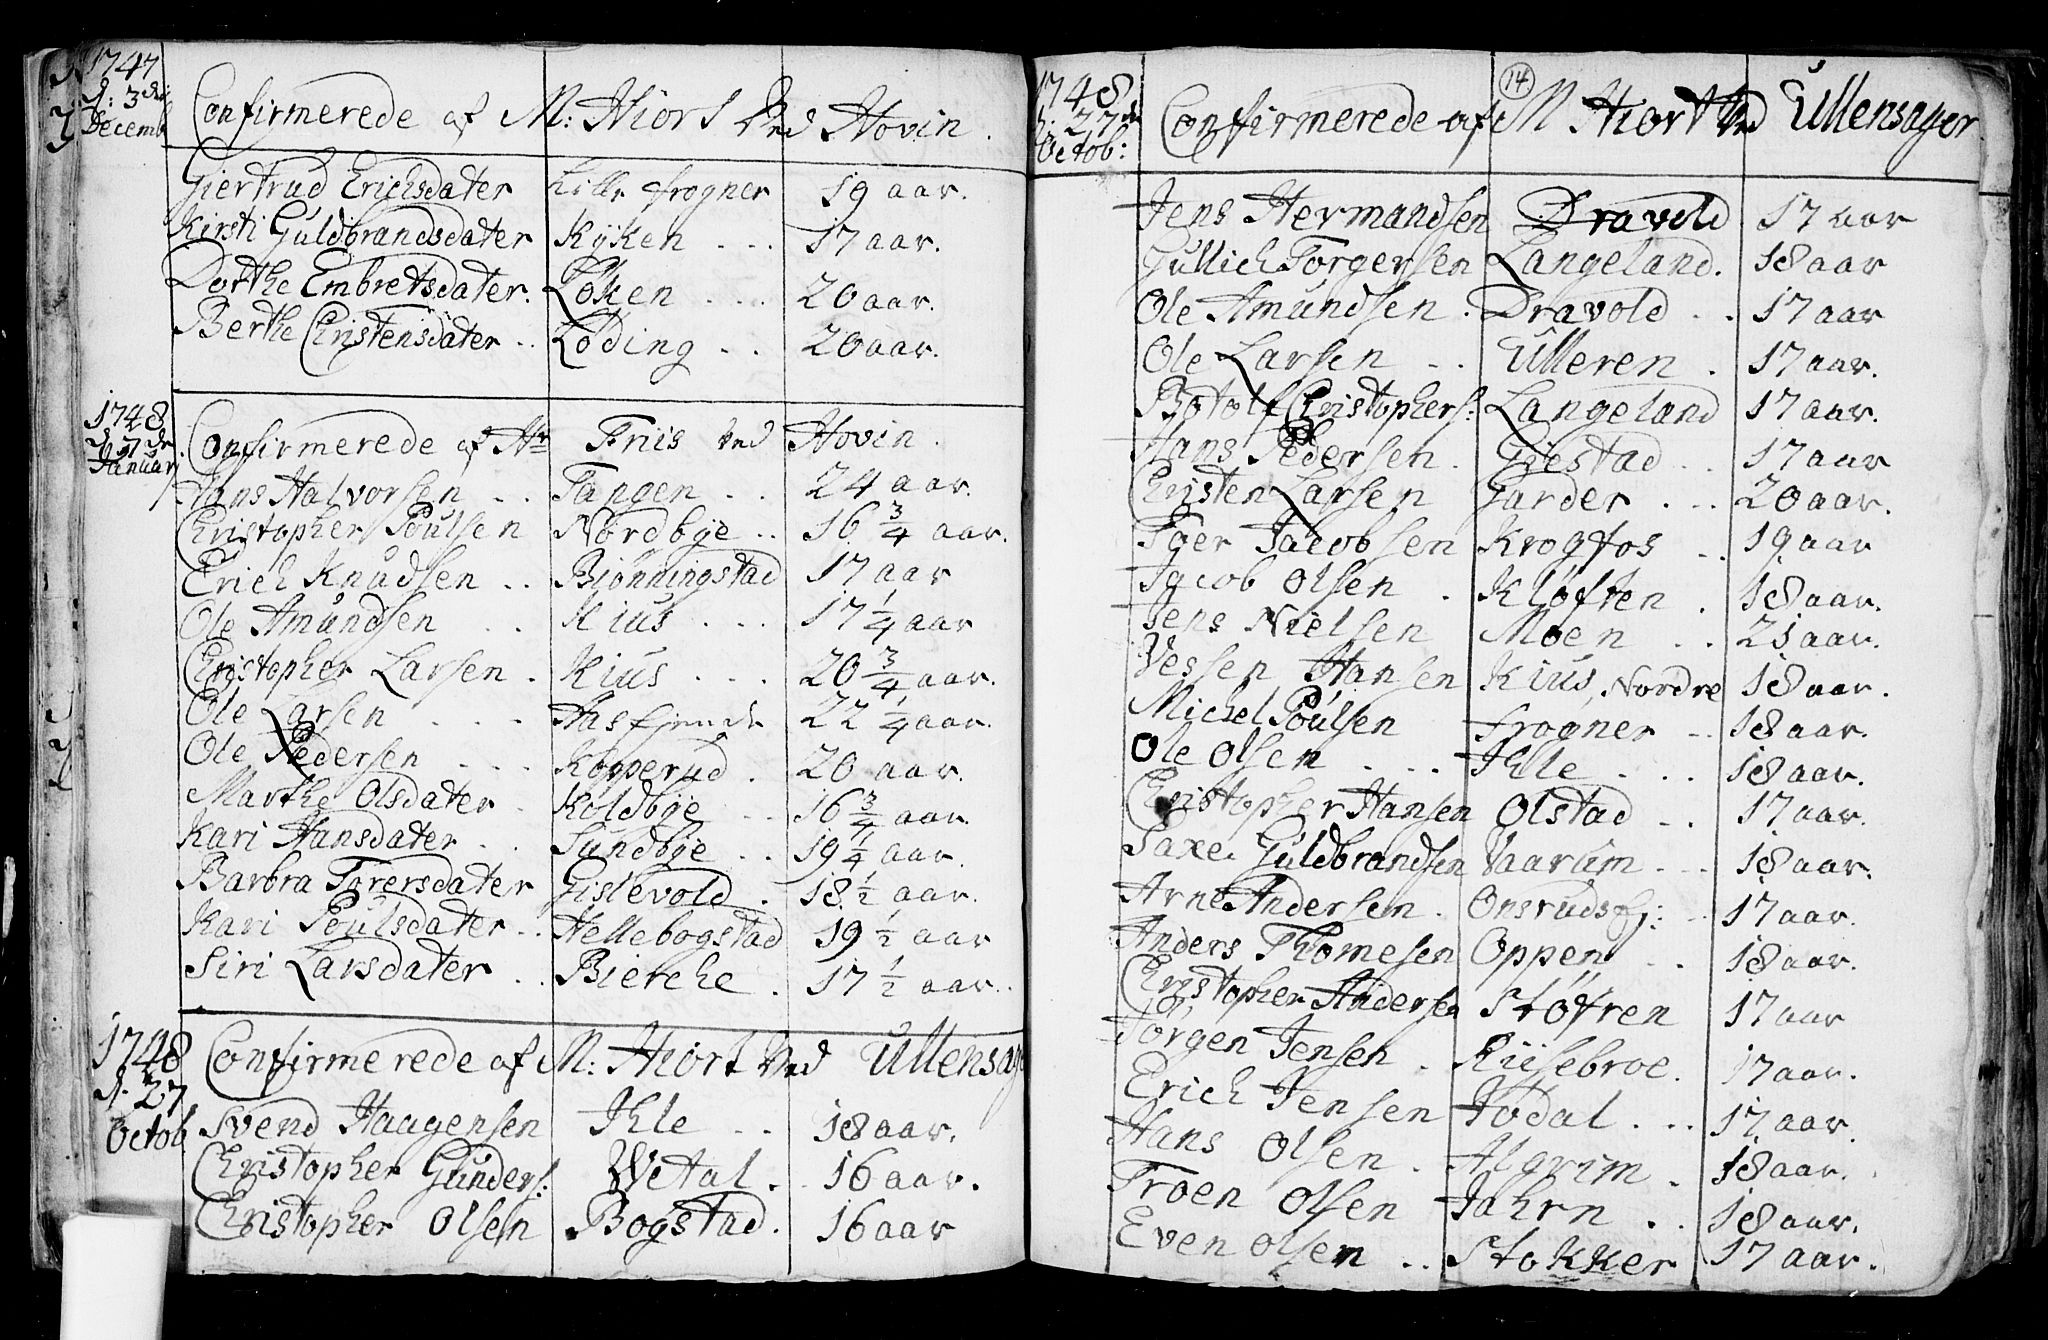 1747
d: 3die
Decemb
Confirmerede af M: Hiort Ved Hovin.
Giertrud Erichsdater Lille frogner 19 aar.
Kirsti Guldbrandsdater Kyken ... 17 aar.
Dorthe Embretsdater. Løken ... 20 aar.
Berthe Christensdater .. Løding .. 20 aar.
1748
d. 7de
Januari
Confirmerede af Hr Friis Ved Hovin.
Hans Halvorsen .. Tangen .. 24 aar.
Christopher Poulsen Nordbye .. 16 3/4 aar.
Erich Knudsen .. Biønningstad 17 aar
Ole Amundsen .. Kius ... 17 1/4 aar
Christopher Larsen . Kius ... 20 3/4 aar.
Ole Larsen ... Aasfjende 22 1/4 aar.
Ole Pedersen ... Kopperud . 20 aar.
Marthe Olsdater . Koldbye .. 16 3/4 aar.
Kari Hansdater .. Sundbye .. 19 1/4 aar.
Barbra Torersdater Gislevold . 18 1/2 aar.
Kari Poulsdater .. Hellebogstad 19 1/2 aar
Siri Larsdater .. Bierche . 17 1/2 aar..
1748
d. 27
Octob
Confirmerede af M: Hiort Ved Ullensag
Svend Haagensen Ihle .. 18 aar.
Christopher Gunders: Wetal .. 16 aar.
Christopher Olsen Bogstad. 16 aar
1748
d. 27de
Octob:
14
Confirmerede af M Hiort Ved Ullensager.
Jens Hermandsen Dravold 17 aar
Gullich Torgersen Langeland. 18 aar
Ole Amundsen . Dravold .. 17 aar
Ole Larsen .. Ulleren . 17 aar.
Botolf Christophers: Langeland 17 aar.
Hans Pedersen . Giestad .. 17 aar
Christen Larsen Garder ... 20 aar.
Toer Jacobsen Krogfos .. 19 aar
Jacob Olsen . Kløften . 18 aar.
Jens Nielsen Moen .. 21 aar.
Vessen Hansen Kius, Nordre 18 aar.
Michel Poulsen frogner .. 18 aar.
Ole Olsen ... Ihle ... 18 aar.
Christopher Hansen Olstad .. 17 aar.
Saxe Guldbrandsen Vaarum ... 18 aar.
Arne Andersen . Onsrudsej: .. 17 aar.
Anders Thomesen Oppen .. 18 aar.
Christopher Andersen Støfren 17 aar
Jørgen Jensen . Riisebroe. 17 aar.
Erich Jensen Jodal ... 17 aar.
Hans Olsen . Algrim . 18 aar.
Troen Olsen Jahrn .. 18 aar.
Even Olsen .. Stokker 17 aar.